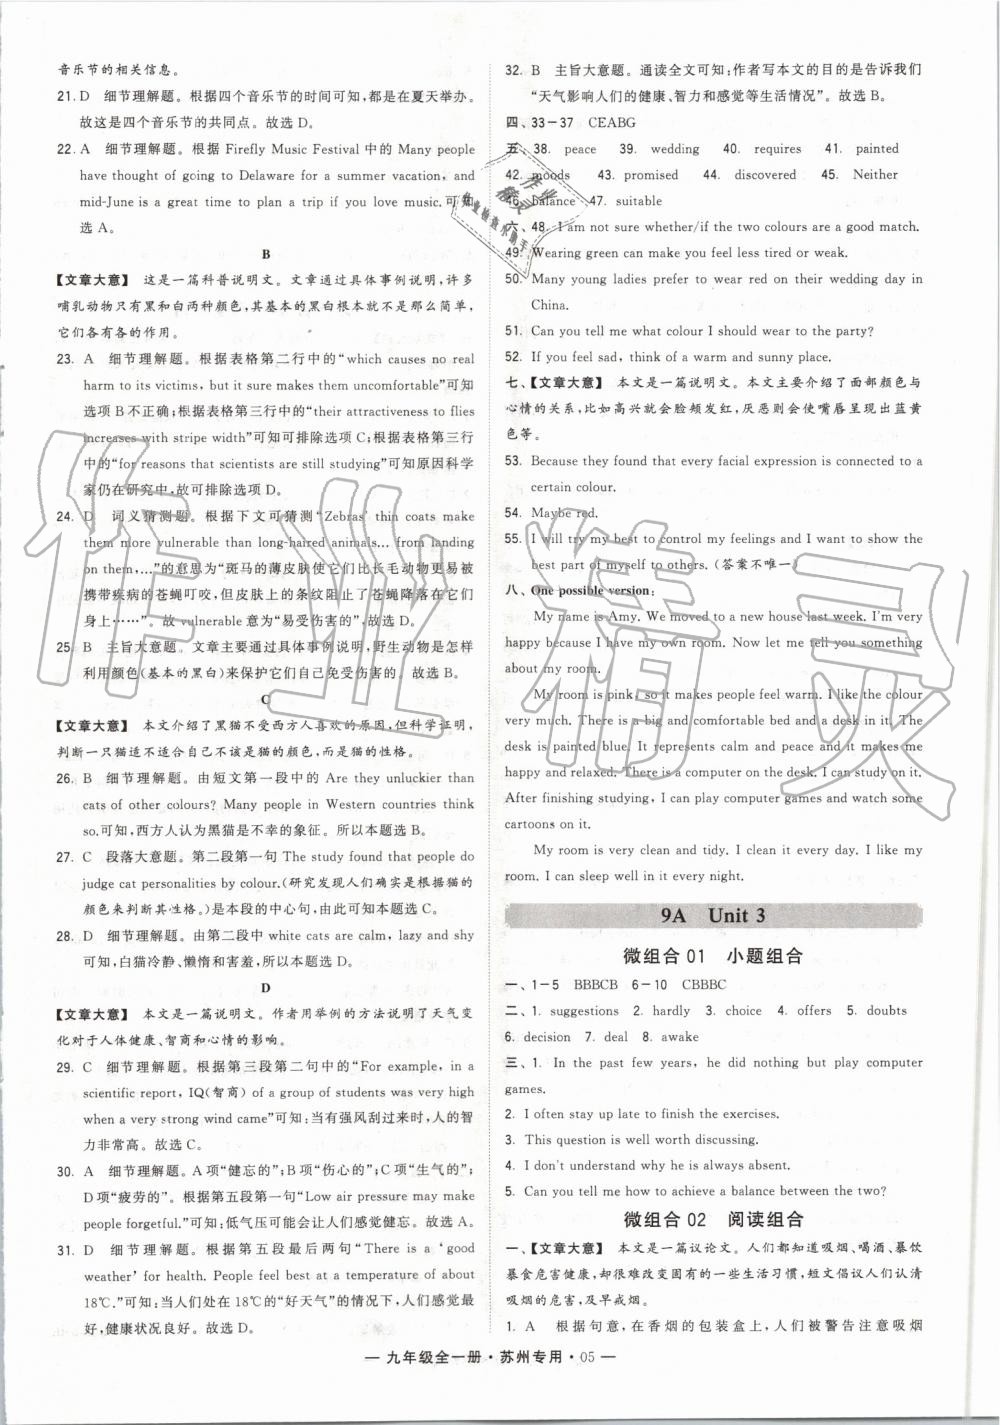 音乐节的相关信息。
21. D　细节理解题。根据四个音乐节的时间可知,都是在夏天举办。
故这是四个音乐节的共同点。故选 D。
22. A　细节理解题。根据 Firefly Music Festival 中的 Many people
have thought of going to Delaware for a summer vacation, and
mid-June is a great time to plan a trip if you love music.可知
选 A。
B
【文章大意】 这是一篇科普说明文。文章通过具体事例说明,许多
哺乳动物只有黑和白两种颜色,其基本的黑白根本就不是那么简单,
它们各有各的作用。
23. A　细节理解题。根据表格第二行中的“which causes no real
harm to its victims, but it sure makes them uncomfortable”可知
选项 B 不正确;根据表格第三行中的“their attractiveness to flies
increases with stripe width”可知可排除选项 C;根据表格第三行
中的“for reasons that scientists are still studying”可知原因科学
家仍在研究中,故可排除选项 D。
24. D　词义猜测题。根据下文可猜测“Zebras' thin coats make
them more vulnerable than long-haired animals... from landing
on them,...”的意思为“斑马的薄皮肤使它们比长毛动物更易被
携带疾病的苍蝇叮咬,但皮肤上的条纹阻止了苍蝇降落在它们
身上……”。故 vulnerable 意为“易受伤害的”,故选 D。
25. B　主旨大意题。文章主要通过具体事例说明,野生动物是怎样
利用颜色(基本的黑白)来保护它们自己免受伤害的。故选 B。
C
【文章大意】 本文介绍了黑猫不受西方人喜欢的原因,但科学证明,
判断一只猫适不适合自己不该是猫的颜色,而是猫的性格。
26. B　细节理解题。由短文第一段中的 Are they unluckier than
cats of other colours? Many people in Western countries think
so.可知,西方人认为黑猫是不幸的象征。所以本题选 B。
27. C　段落大意题。第二段第一句 The study found that people do
judge cat personalities by colour.(研究发现人们确实是根据猫的
颜色来判断其性格。)是本段的中心句,由此可知本题选 C。
28. D　细节理解题。由第二段中 white cats are calm, lazy and shy
可知,白猫冷静、懒惰和害羞,所以本题选 D。
D
【文章大意】 本文是一篇说明文。作者用举例的方法说明了天气变
化对于人体健康、智商和心情的影响。
29. C　细节理解题。根据第三段第二句中的“For example, in a
scientific report, IQ(智商) of a group of students was very high
when a very strong wind came”可知:当有强风刮过来时,人的智
力非常高。故选 C。
30. A　细节理解题。A 项“健忘的”;B 项“伤心的”;C 项“生气的”;
D 项“疲劳的”。根据第五段第一句“Low air pressure may make
people forgetful.”可知:低气压可能会让人们感觉健忘。故选 A。
31. D　细节理解题。根据第五段最后两句“There is a ‘good
weather’ for health. People feel best at a temperature of about
18℃.”可知:当人们处在 18℃的“好天气”的情况下,人们感觉最
好,健康状况良好。故选 D。
32. B　主旨大意题。通读全文可知:作者写本文的目的是告诉我们
“天气影响人们的健康、智力和感觉等生活情况”。故选 B。
四、33－37　CEABG
五、38. peace　39. wedding　40. requires　41. painted
42. moods　43. promised　44. discovered　45. Neither
46. balance　47. suitable
六、48. I am not sure whether/if the two colours are a good match.
49. Wearing green can make you feel less tired or weak.
50. Many young ladies prefer to wear red on their wedding day in
China.
51. Can you tell me what colour I should wear to the party?
52. If you feel sad, think of a warm and sunny place.
七、【文章大意】 本文是一篇说明文。本文主要介绍了面部颜色与
心情的关系,比如高兴就会脸颊发红,厌恶则会使嘴唇呈现出蓝黄
色等。
53. Because they found that every facial expression is connected to a
certain colour.
54. Maybe red.
55. I will try my best to control my feelings and I want to show the
best part of myself to others. (答案不唯一)
八、One possible version:
My name is Amy. We moved to a new house last week. I'm very
happy because I have my own room. Now let me tell you something
about my room.
My room is pink, so it makes people feel warm. I like the colour
very much. There is a big and comfortable bed and a desk in it. The
desk is painted blue. It represents calm and peace and makes me
happy and relaxed. There is a computer on the desk. I can study on it.
After finishing studying, I can play computer games and watch some
cartoons on it.
My room is very clean and tidy. I clean it every day. I like my
room. I can sleep well in it every night.
9A　Unit 3
微组合 01　小题组合
一、1－5　BBBCB　6－10　CBBBC
二、1. suggestions　2. hardly　3. choice　4. offers　5. doubts
6. decision　7. deal　8. awake
三、1. In the past few years, he did nothing but play computer
games.
2. I often stay up late to finish the exercises.
3. This question is well worth discussing.
4. I don't understand why he is always absent.
5. Can you tell me how to achieve a balance between the two?
微组合 02　阅读组合
一、【文章大意】 本文是一篇议论文。人们都知道吸烟、喝酒、暴饮
暴食危害健康,却很难改变固有的一些生活习惯,短文倡议人们认清
吸烟的危害,及早戒烟。
1. A　根据句意,在香烟的包装盒上,人们被警告注意吸烟
— 九年级全一册·苏州专用·05 —
作业精灵